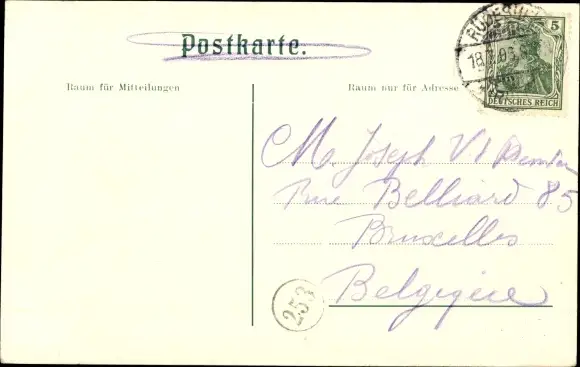 Postkarte.
Raum für Mitteilungen
Raum nur für Adresse
5
DEUTSCHES REICH
M. Joseph
Rue Belliard 85
Bruxelles
Belgique
253